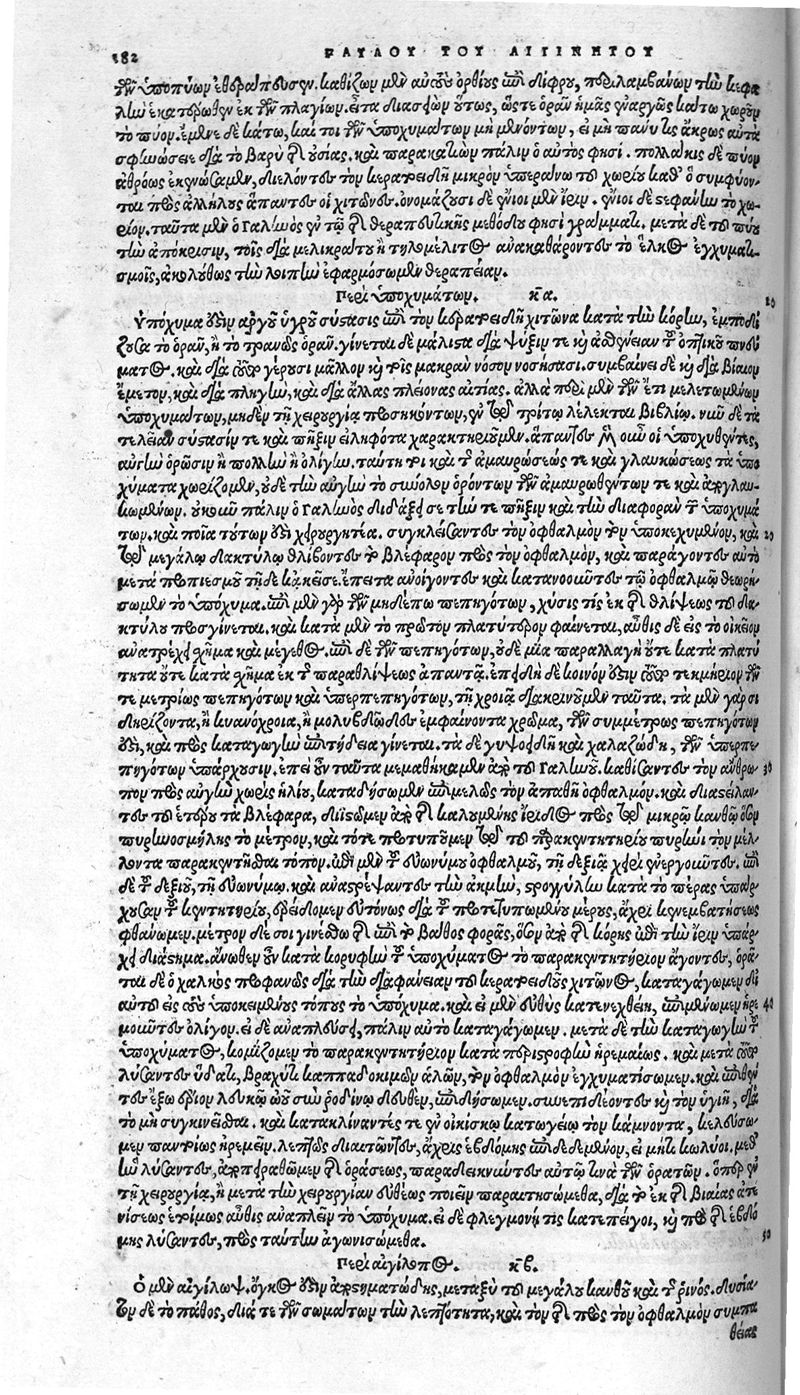 182 ΠΑΥΛΟΥ ΤΟΥ ΑΙΓΙΝΗΤΟΥ
τῶν ὑποπύων ἐθεράπευσεν. καθίζων μὲν αὐτοὺς ὀρθίους ἐπὶ δίφρου, περιλαμβάνων τὴν κεφα
λὴν ἑκατέρωθεν ἐκ τῶν πλαγίων. εἶτα διασείων οὕτως, ὥστε ὁρᾶν ἡμᾶς ἐναργῶς κάτω χωροῦν
τὸ πύον. ἔμενε δὲ κάτω, καί τοι τῶν ὑποχυμάτων μὴ μενόντων, εἰ μὴ πάνυ τις ἄκρως αὐτὰ
σφηνώσειε διὰ τὸ βαρὺ τῆς οὐσίας. καὶ παρακατιὼν πάλιν ὁ αὐτός φησι. πολλάκις δὲ πύον
ἀθρόως ἐκενώσαμεν, διελόντες τὸν κερατοειδῆ μικρὸν ὑπεράνω τοῦ χωρίου καθ' ὃ συμφύον-
ται πρὸς ἀλλήλους ἅπαντες οἱ χιτῶνες. ὀνομάζουσι δὲ ἔνιοι μὲν ἶριν. ἔνιοι δὲ στεφάνην τὸ χω-
ρίον. ταῦτα μὲν ὁ Γαληνὸς ἐν τῷ τῆς θεραπευτικῆς μεθόδου φησὶ γράμματι. μετὰ δὲ τοῦ πύου
τὴν ἀπόκρισιν, τοῖς διὰ μελικράτου ἢ τηλομέλιτος ἀνακαθάροντες τὸ ἕλκος ἐγχυματι-
σμοῖς, ἀκολούθως τὴν λοιπὴν ἐφαρμόσωμεν θεραπείαν.
Περὶ ὑποχυμάτων. κα.
Ὑπόχυμα ἐστὶν ἀργοῦ ὑγροῦ σύστασις ἐπὶ τὸν κερατοειδῆ χιτῶνα κατὰ τὴν κόρην, ἐμποδί
ζουσα τὸ ὁρᾶν, ἢ τὸ τρανῶς ὁρᾶν. γίνεται δὲ μάλιστα διὰ ψῦξίν τε καὶ ἀσθένειαν τοῦ ὀπτικοῦ πνεύ
ματος. καὶ διὰ τοῦτο γέρουσι μᾶλλον καὶ τοῖς μακρὰν νόσον νοσήσασι. συμβαίνει δὲ καὶ διὰ βίαιον
ἔμετον, καὶ διὰ πληγὴν, καὶ διὰ ἄλλας πλείονας αἰτίας. ἀλλὰ περὶ μὲν τῶν ἔτι μελετωμένων
ὑποχυμάτων, μηδὲν τῇ χειρουργίᾳ προσηκόντων, ἐν τῷ τρίτῳ λέλεκται βιβλίῳ. νῦν δὲ τὰ
τελείαν σύστασίν τε καὶ πῆξιν εἰληφότα χαρακτηριοῦμεν. ἅπαντες μὲν οὖν οἱ ὑποχυθέντες,
αὐγὴν ὁρῶσιν ἢ πολλὴν ἢ ὀλίγην. ταύτῃ τοι καὶ τῆς ἀμαυρώσεώς τε καὶ γλαυκώσεως τὰ ὑπο
χύματα χωρίζομεν, οὐδὲ τὴν αὐγὴν τὸ σύνολον ὁρόντων τῶν ἀμαυρωθέντων τε καὶ ἀπογλαυ-
κωμένων. οὐκοῦν πάλιν ὁ Γαληνὸς διδάξει σε τήν τε πῆξιν καὶ τὴν διαφορὰν τῶν ὑποχυμά
των. καὶ ποῖα τούτων ἐστὶ χειρουργητέα. συγκλείσαντες τὸν ὀφθαλμὸν τὸν ὑποκεχυμένον, καὶ
τῷ μεγάλῳ δακτύλῳ θλίβοντες τὸ βλέφαρον πρὸς τὸν ὀφθαλμὸν, καὶ παράγοντες αὐτὸ
μετὰ προπιεσμοῦ τῇδε κἀκεῖσε. ἔπειτα ἀνοίγοντες καὶ κατανοοῦντες τῷ ὀφθαλμῷ θεωρή-
σωμεν τὸ ὑπόχυμα. ἐπὶ μὲν γὰρ τῶν μηδέπω πεπηγότων, χύσις τίς ἐκ τῆς θλίψεως τοῦ δα-
κτύλου προσγίνεται. καὶ κατὰ μὲν τὸ πρῶτον πλατύτερον φαίνεται, αὖθις δὲ εἰς τὸ οἰκεῖον
ἀνατρέχει σχῆμα καὶ μέγεθος. ἐπὶ δὲ τῶν πεπηγότων, οὐδὲ μία παραλλαγὴ οὔτε κατὰ πλατύ
τητα οὔτε κατὰ σχῆμα ἐκ τῆς παραθλίψεως ἀπαντᾷ. ἐπειδὴ δὲ κοινόν ἐστιν τοῦτο τεκμήριον τῶν
τε μετρίως πεπηγότων καὶ ὑπερπεπηγότων, τῇ χροιᾷ διακρινοῦμεν ταῦτα. τὰ μὲν γὰρ σι
δηρίζοντα, ἢ κυανόχροια, ἢ μολυβδῶδες ἐμφαίνοντα χρῶμα, τῶν συμμέτρως πεπηγότων
ἐστὶ, καὶ πρὸς καταγωγὴν ἐπιτήδεια γίνεται. τὰ δὲ γυψοειδῆ καὶ χαλαζώδη, τῶν ὑπερπε-
πηγότων ὑπάρχουσιν. ἐπεὶ οὖν ταῦτα μεμαθήκαμεν ἀπὸ τοῦ Γαληνοῦ. καθίσαντες τὸν ἄνθρω- 30
πον πρὸς αὐγὴν χωρὶς ἡλίου, καταδήσωμεν ἐπιμελῶς τὸν ἀπαθῆ ὀφθαλμόν. καὶ διαστείλαν-
τες τοῦ ἑτέρου τὰ βλέφαρα, διϊστῶμεν ἀπὸ τῆς καλουμένης ἴριδος πρὸς τῷ μικρῷ κανθῷ ὅσον
πυρῆνος μήλης τὸ μέτρον, καὶ τότε προτυποῦμεν τῷ τοῦ παρακεντητηρίου πυρῆνι τὸν μέλ-
λοντα παρακεντῆσθαι τόπον. ἐπὶ μὲν τοῦ εὐωνύμου ὀφθαλμοῦ, τῇ δεξιᾷ χειρὶ ἐνεργοῦντες. ἐπὶ
δὲ τοῦ δεξιοῦ, τῇ εὐωνύμῳ. καὶ ἀναστρέψαντες τὴν ἀκμὴν, στρογγύλην κατὰ τὸ πέρας ὑπάρ-
χουσαν τοῦ κεντητηρίου, ἐρείδομεν εὐτόνως διὰ τοῦ προτετυπωμένου μέρους, ἄχρι κενεμβατήσεως
φθάνωμεν. μέτρον δέ σοι γινέσθω τῆς ἐπὶ τὸ βάθος φορᾶς, ὅσον ἀπὸ τῆς κόρης ἐπὶ τὴν ἶριν ὑπάρ-
χει διάστημα. ἄνωθεν οὖν κατὰ κορυφὴν τοῦ ὑποχύματος τὸ παρακεντητήριον ἄγοντες, ὁρᾶ-
ται δὲ ὁ χαλκὸς προφανῶς διὰ τὴν διαφάνειαν τοῦ κερατοειδοῦς χιτῶνος, καταγάγωμεν δι'
αὐτοῦ εἰς τοὺς ὑποκειμένους τόπους τὸ ὑπόχυμα. καὶ εἰ μὲν εὐθὺς κατενεχθείη, ἐπιμένωμεν ἠρε 40
μοῦντες ὀλίγον. εἰ δὲ ἀναπλεύσει, πάλιν αὐτὸ καταγάγωμεν. μετὰ δὲ τὴν καταγωγὴν τοῦ
ὑποχύματος, κομίζομεν τὸ παρακεντητήριον κατὰ περιστροφὴν ἠρεμαίως. καὶ μετὰ τοῦτο
λύσαντες ὕδατι, βραχύτι καππαδοκικῶν ἁλῶν, τὸν ὀφθαλμὸν ἐγχυματίσωμεν. καὶ ἐπιθέν
τες ἔξωθεν ἔριον λεκύθῳ ὠοῦ σὺν ῥοδίνῳ δευθὲν, ἐπιδήσωμεν. συνεπιδέοντες καὶ τὸν ὑγιῆ, διὰ
τὸ μὴ συγκινεῖσθαι. καὶ κατακλίναντές τε ἐν οἰκίσκῳ κατωγείῳ τὸν κάμνοντα, κελεύσω-
μεν παντοίως ἠρεμεῖν. λεπτῶς διαιτῶντες, ἄχρις ἑβδόμης ἐπιδεδεμένον, εἰ μή τι κωλύοι. μεθ'
ἣν λύσαντες, ἀποπειραθῶμεν τῆς ὁράσεως, παραδεικνῦντες αὐτῷ τινὰ τῶν ὁρατῶν. ὅπερ ἐν
τῇ χειρουργίᾳ, ἢ μετὰ τὴν χειρουργίαν εὐθέως ποιεῖν παραιτησώμεθα, διὰ τὸ ἐκ τῆς βιαίας ἀτε
νίσεως ἑτοίμως αὖθις ἀναπλεῖν τὸ ὑπόχυμα. εἰ δὲ φλεγμονή τις κατεπείγοι, καὶ πρὸ τῆς ἑβδό-
μης λύσαντες, πρὸς ταύτην ἀγωνισώμεθα.
Περὶ αἰγίλωπος. κβ.
Ὁ μὲν αἰγίλωψ. ὄγκος ἐστὶν ἀποστηματώδης, μεταξὺ τοῦ μεγάλου κανθοῦ καὶ τῆς ῥινός. δυσία-
τον δὲ τὸ πάθος, διά τε τῶν σωμάτων τὴν λεπτότητα, καὶ τὸν τῆς πρὸς τὸν ὀφθαλμὸν συμπα
θείας